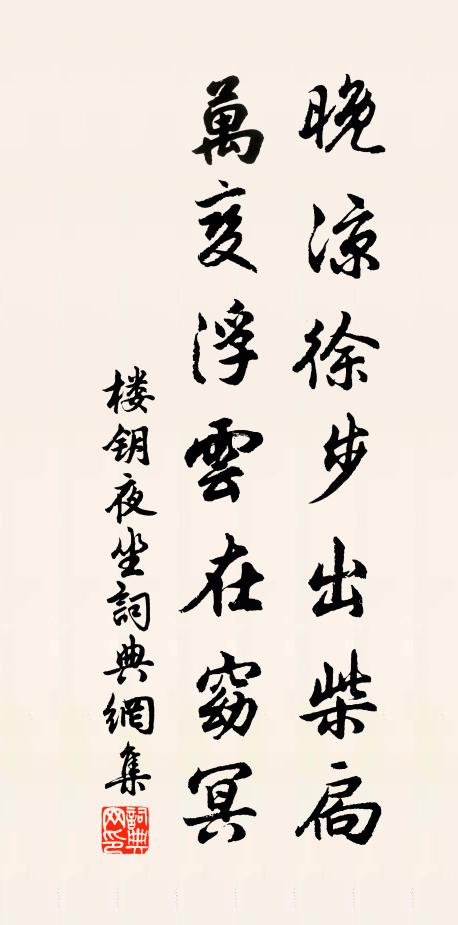 晚涼徐步出柴扃
萬变浮雲在窈冥
楼钥夜坐詞典網集
詞典网印